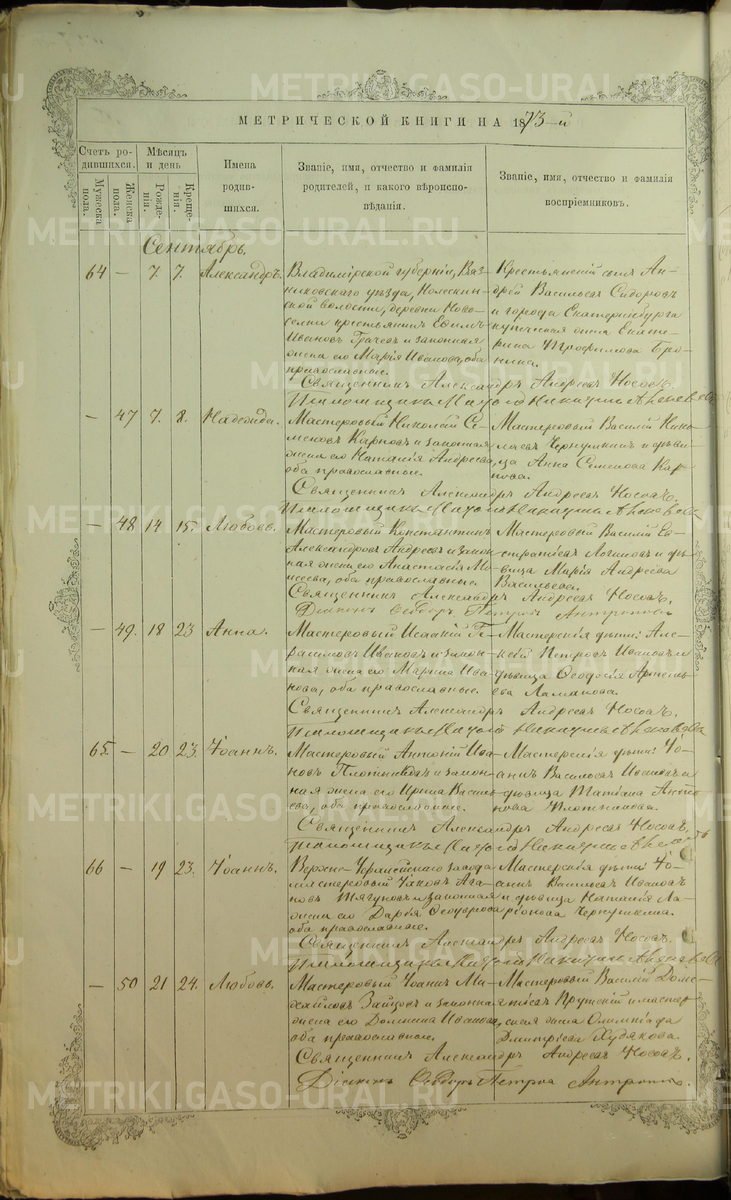 МЕТРИЧЕСКОЙ КНИГИ НА 1873-й
Счетъ родившихся.
Мужеска пола.
Женска пола.
Мѣсяцъ и день
Рожденія.
Крещенія.
Имена родившихся.
Званіе, имя, отчество и фамилія родителей, и какого вѣроисповѣданія.
Званіе, имя, отчество и фамилія воспріемниковъ.
Сентябрь.
64 — 7. 7. Александръ.
Владимірской губерніи, Вяз-
никовскаго уѣзда,
ской волости, деревни Ново-
селки крестьянинъ Евѳимъ
Ивановъ Грачевъ и законная
жена его Марія Иванова, оба
православные.
Крестьянскій сынъ Ан-
дрей Васильевъ Сидоровъ
и города Екатеринбурга
купеческая жена Екате-
рина Трофимова
Священникъ Александръ Андреевъ Носовъ.
— 47 7. 8. Надежда.
Мастеровый Николай Се-
меновъ Карповъ и законная
жена его Наталія Андреева,
оба православные.
Мастеровый Василій Нико-
лаевъ и дѣви-
ца Анна Семенова Кар-
пова.
Священникъ Александръ Андреевъ Носовъ.
— 48 14 15. Любовь.
Мастеровый Константинъ
Александровъ Андреевъ и закон-
ная жена его Анастасія Мо-
исеева, оба православные.
Мастеровый Василій Ев-
стратіевъ Логиновъ и дѣ-
вица Марія Андреева
Васильева.
Священникъ Александръ Андреевъ Носовъ.
Діаконъ Ѳеодоръ Петровъ
— 49. 18 23 Анна.
Мастеровый Исаакій Ге-
расимовъ Ивановъ и закон-
ная жена его Марина Ива-
нова, оба православные.
Мастерскія дѣти: Але-
ксѣй Петровъ Ивановъ и
дѣвица Ѳеодосія Артемь-
ева Ламанова.
Священникъ Александръ Андреевъ Носовъ.
65. — 20 23. Іоаннъ.
Мастеровый Антоній Ива-
новъ Плотниковъ и закон-
ная жена его Ирина Василь-
ева, оба православные.
Мастерскія дѣти: Іо-
аннъ Васильевъ Ивановъ и
дѣвица Татіана Анто-
нова Плотникова.
Священникъ Александръ Андреевъ Носовъ.
66 — 19 23. Іоаннъ.
Верхне-Уфалейскаго завода
мастеровый Іаковъ Ага-
повъ Тягуновъ и законная
жена его Дарья Ѳеодорова,
оба православные.
Мастерскія дѣти: Іо-
аннъ Васильевъ Ивановъ
и дѣвица Наталія Ла-
ріонова
Священникъ Александръ Андреевъ Носовъ.
— 50 21 24. Любовь.
Мастеровый Іоаннъ Ми-
хайловъ Зайцовъ и законная
жена его Домнина Иванова,
оба православные.
Мастеровый Василій Доме-
тіевъ Прутскій и мастер-
ская жена Олимпіада
Димитріева Худякова.
Священникъ Александръ Андреевъ Носовъ.
Діаконъ Ѳеодоръ Петровъ
METRIKI.GASO-URAL.RU